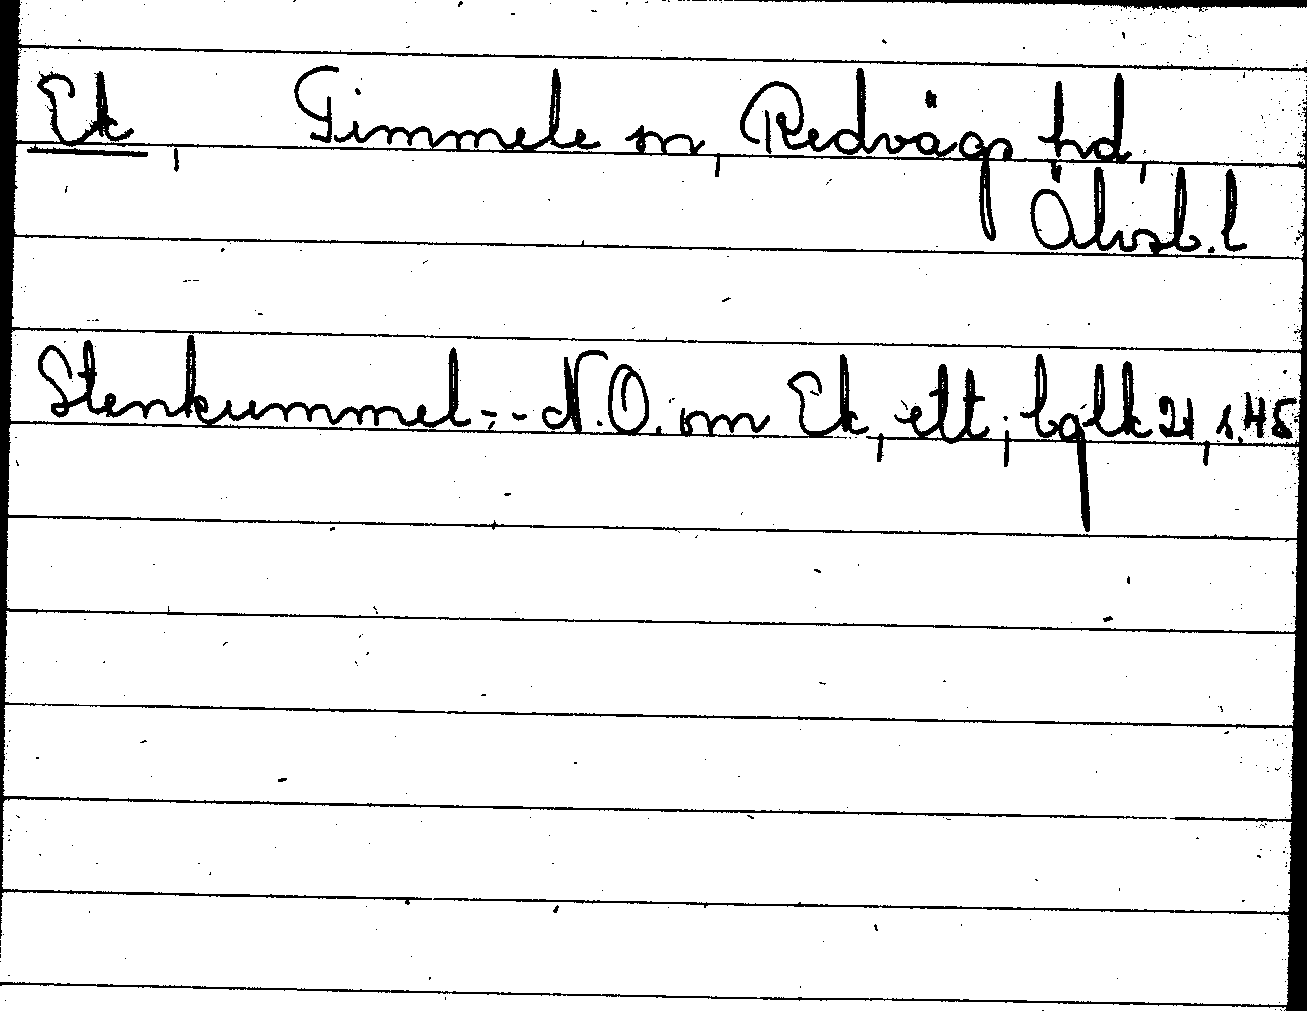 Ek, Timmele sn, Redvägs hd,
Älvsb. l
Stenkummel -;- N.O. om Ek, ett; bglk 21, s. 45